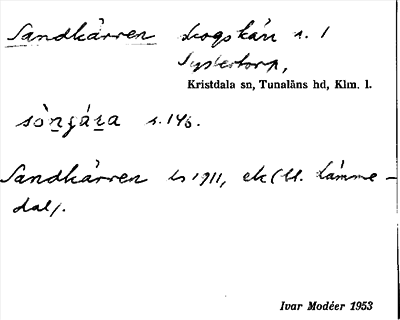 Sandkärren skogskärr s. 1
Systertorp,
Kristdala sn, Tunaläns hd, Klm. l.
s. 146.
Sandkärren ls 1911, ek (ll. Lämme-
dal).
Ivar Modéer 1953